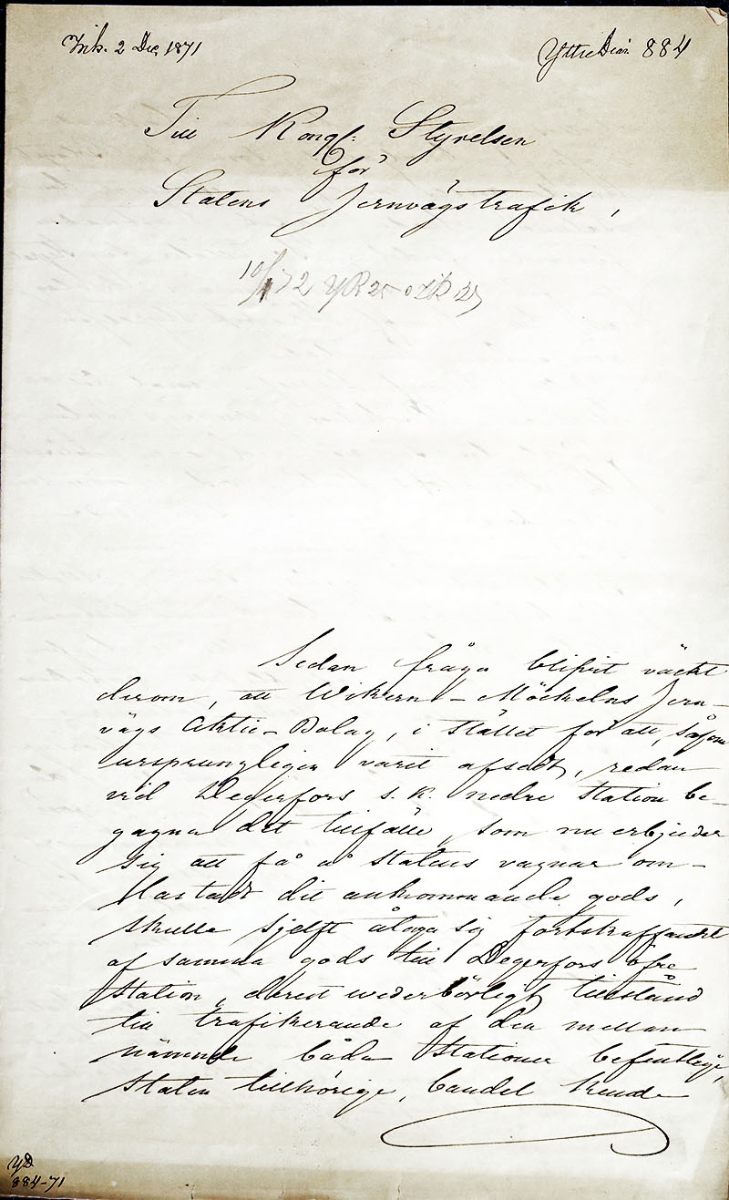 Ink. 2 Dec 1871
Yttre Diar. 884
Till Kongl. Styrelsen
för
Statens Jernvägstrafik,
10/1 72 YR 25
Sedan fråga blifvit väckt
derom, att Wikern-Möckelns Jern-
vägs Aktie-Bolag, i stället för att, såsom
ursprungligen varit afsedt, redan
vid Degerfors s.k. nedre station be-
gagna det tillfälle, som nu erbjuder
sig att få å statens vagnar om-
lastadt dit ankommande gods,
skulle sjelft åtaga sig fortskaffandet
af samma gods till Degerfors öfre
Station, derest wederbörligt tillstånd
till trafikerande af den mellan
nämnde båda Stationer befintlige,
Staten tillhörige, bandel kunde
YD
884-71